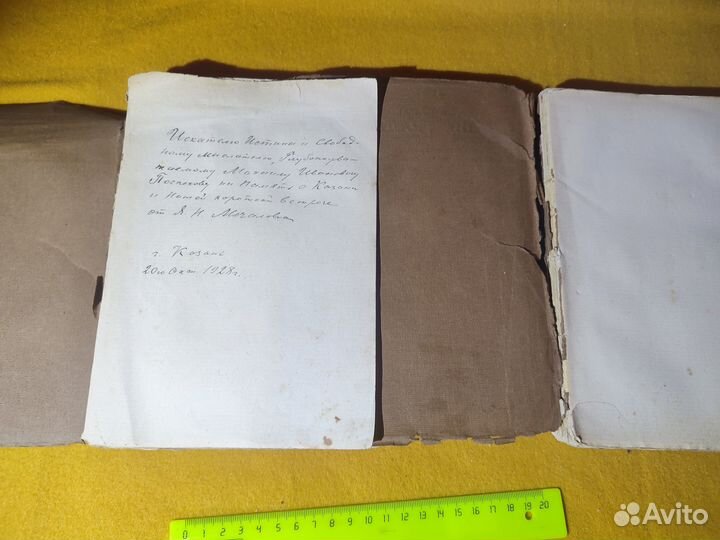 Искателю Истины и Свобод-
ному Мыслителю, Глубокоува-
жаемому Максиму Ивановичу
на Память о Казани
и нашей короткой встрече
от Я. Н.
г. Казань
20го Окт. 1928г.
0 1 2 3 4 5 6 7 8 9 10 11 12 13 14 15 16 17 18 19 20
Avito